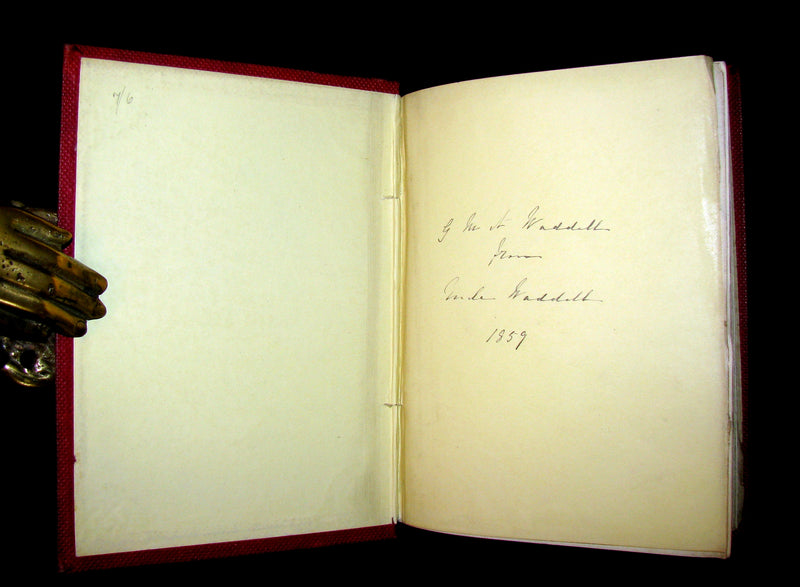 7/6
G M A Waddell
from
Uncle Waddell
1859